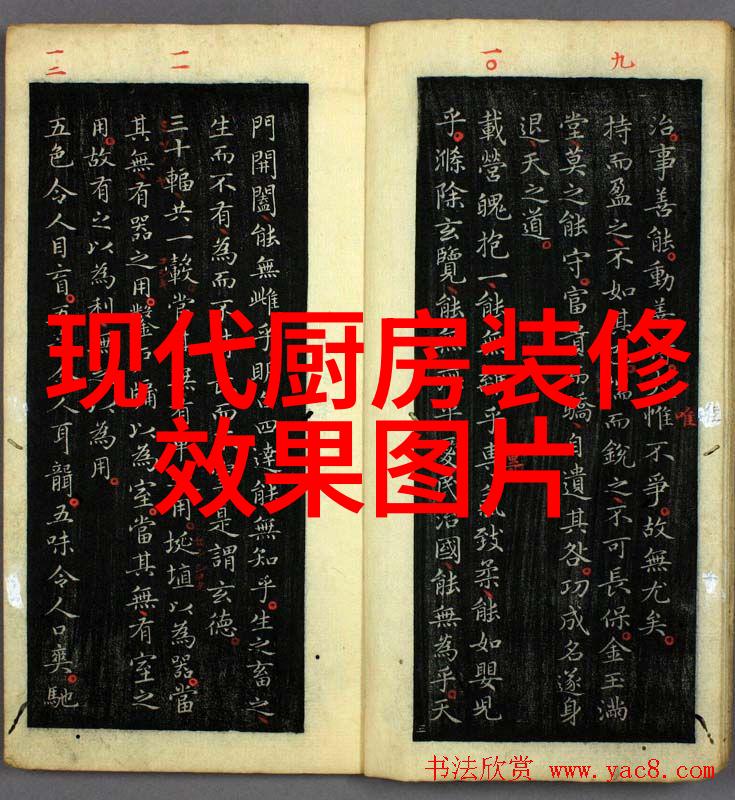 九
一〇
治。事善能。動善惟不爭。故無尤矣。
唯
持而盈之、不如其揣而銳之、不可長保。金玉滿
堂、莫之能守。富貴而驕、自遺其咎。功成名遂身
退、天之道。
載營魄抱一、能無離乎。專氣致柔、能如嬰兒
乎。滌除玄覽、能無乎。愛民治國、能無為乎。天
一一
一二
門開闔、能無雌乎。明白四達、能無知乎。生之畜之、
生而不有、為而不恃、長而是謂玄德。
三十輻、共一轂、當其無有用。埏埴以為器、當
其無、有器之用。鑿戶牖以為室。當其無、有室之
用。故有之以為利、無以為用。
五色令人目盲。五人耳聾。五味令人口爽。馳
现代厨房装修
效果图片
书法欣赏 www.yac8.com